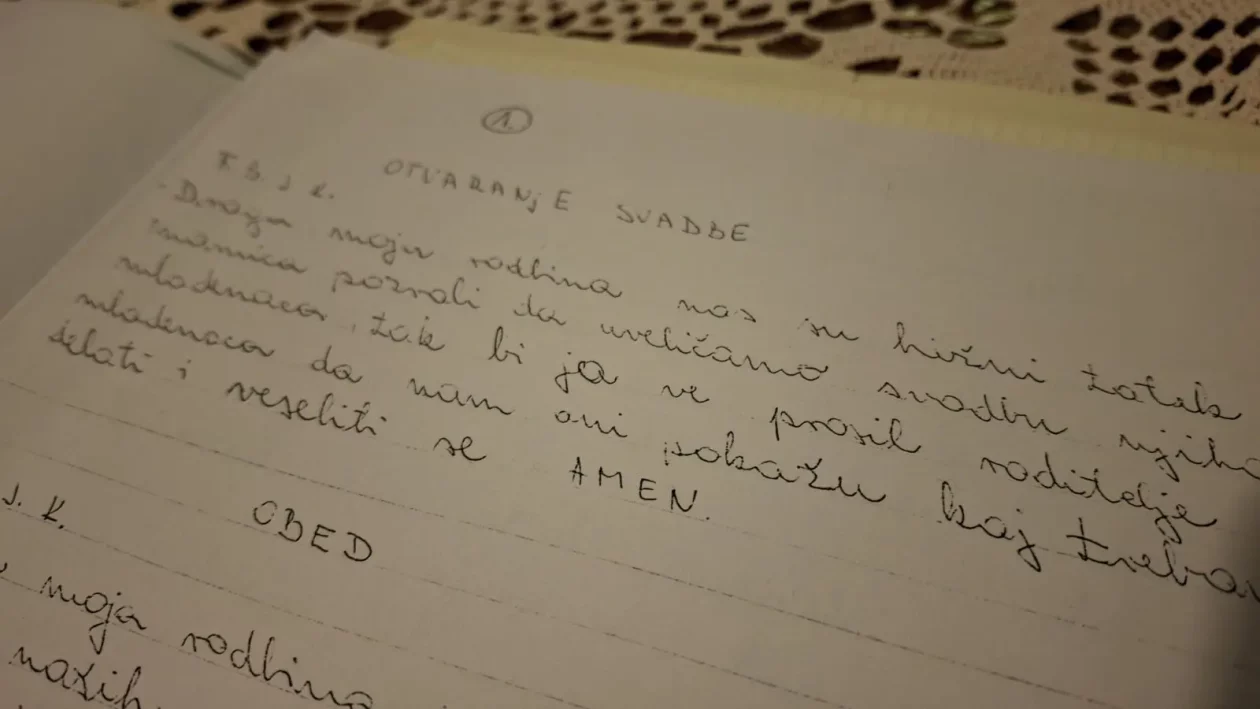 1.
OTVARANJE SVADBE
F. B. J. K.
Draga moja rodbina nas su hižni totek
mamica pozvali da uveličamo svadbu njiho
mladenaca, tak bi ja ve prosil roditelje
mladenaca da nam oni pokažu kaj treba
delati i veseliti se AMEN.
OBED
J. K.
moja rodbina
naših